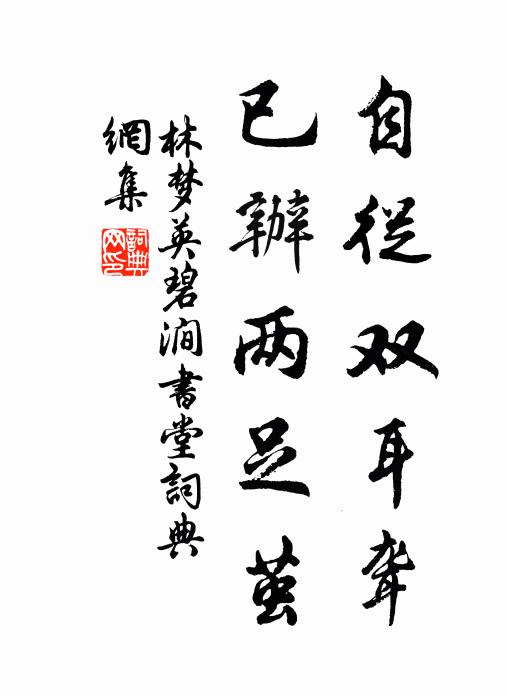 自從双耳聋
已辦两足茧
林梦英碧澗書堂詞典
網集
詞典
网印